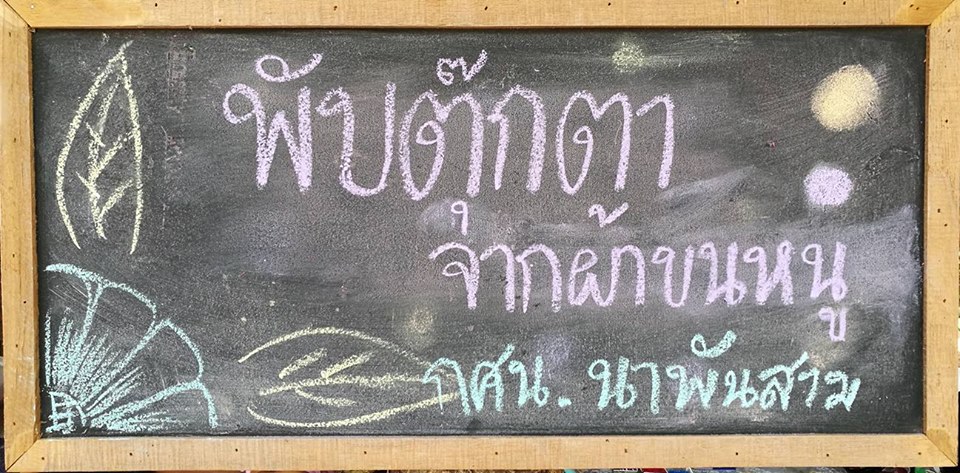 พับตุ๊กตา
จากผ้าขนหนู
กศน. นาพันสาม